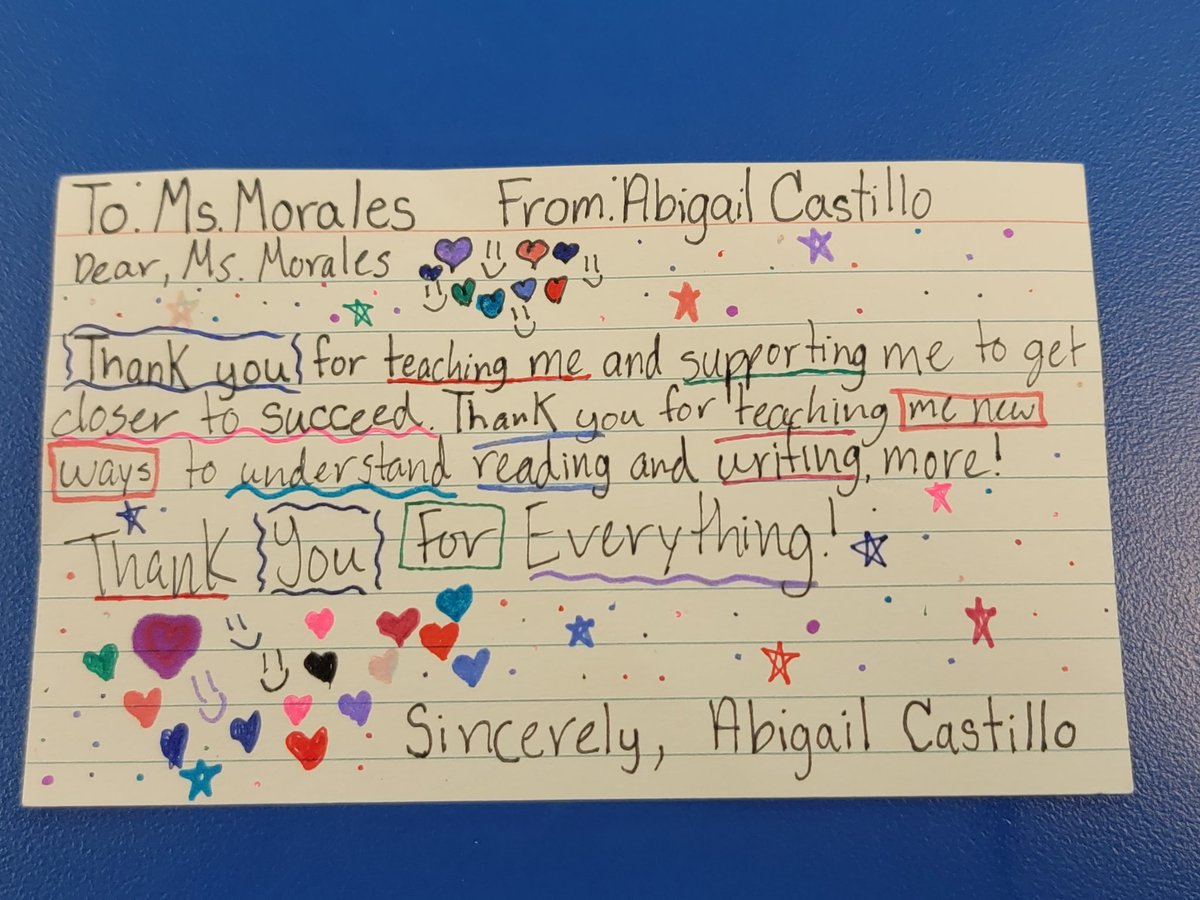 To: Ms. Morales From: Abigail Castillo
Dear, Ms. Morales
Thank you for teaching me and supporting me to get
closer to succeed. Thank you for teaching me new
ways to understand reading and writing, more!
Thank You For Everything!
Sincerely, Abigail Castillo